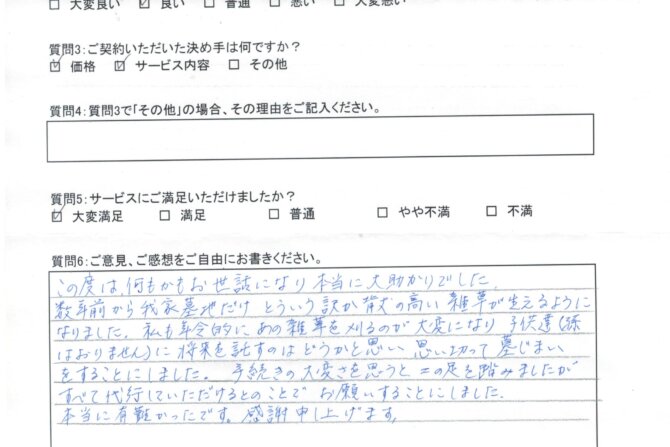 □ 大変良い ☑ 良い □ 普通 □ 悪い □ 大変悪い
質問3:ご契約いただいた決め手は何ですか?
☑ 価格 ☑ サービス内容 □ その他
質問4:質問3で「その他」の場合、その理由をご記入ください。
質問5:サービスにご満足いただけましたか?
☑ 大変満足 □ 満足 □ 普通 □ やや不満 □ 不満
質問6:ご意見、ご感想をご自由にお書きください。
この度は、何もかもお世話になり本当に大助かりでした。
数年前から我家墓地だけ どういう訳か背丈の高い雑草が生えるように
なりました。私も年令的にあの雑草を刈るのが大変になり 子供達(孫
はおりません)に将来を託すのはどうかと思い 思い切って墓じまい
をすることにしました。手続きの大変さを思うと二の足を踏みましたが
すべて代行していただけるとのことでお願いすることにしました。
本当に有難かったです。感謝申し上げます。